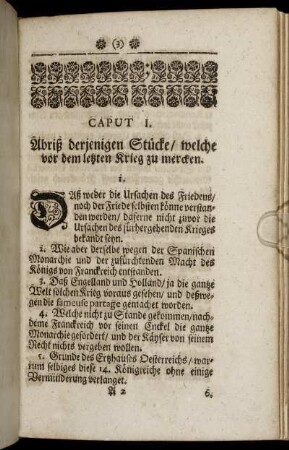 (3)
CAPUT I.
Abriß derjenigen Stücke/ welche
vor dem letzten Krieg zu mercken.
1.
Daß weder die Ursachen des Friedens/
noch der Friede selbsten könne verstan-
den werden/ daferne nicht zuvor die
Ursachen des fürhergehenden Krieges
bekandt seyn.
2. Wie aber derselbe wegen der Spanischen
Monarchie und der zufürchtenden Macht des
Königs von Franckreich entstanden.
3. Daß Engelland und Holland/ ja die gantze
Welt solchen Krieg voraus gesehen/ und deßwe-
gen die fameuse partage gemachet worden.
4. Welche nicht zu Stande gekommen/ nach-
dem Franckreich vor seinen Enckel die gantze
Monarchie gefordert/ und der Käyser von seinem
Recht nichts vergeben wollen.
5. Gründe des Ertzhauses Oesterreichs/ wa-
rum selbiges diese 14. Königreiche ohne einige
Verminderung verlanget.
A 2 6.